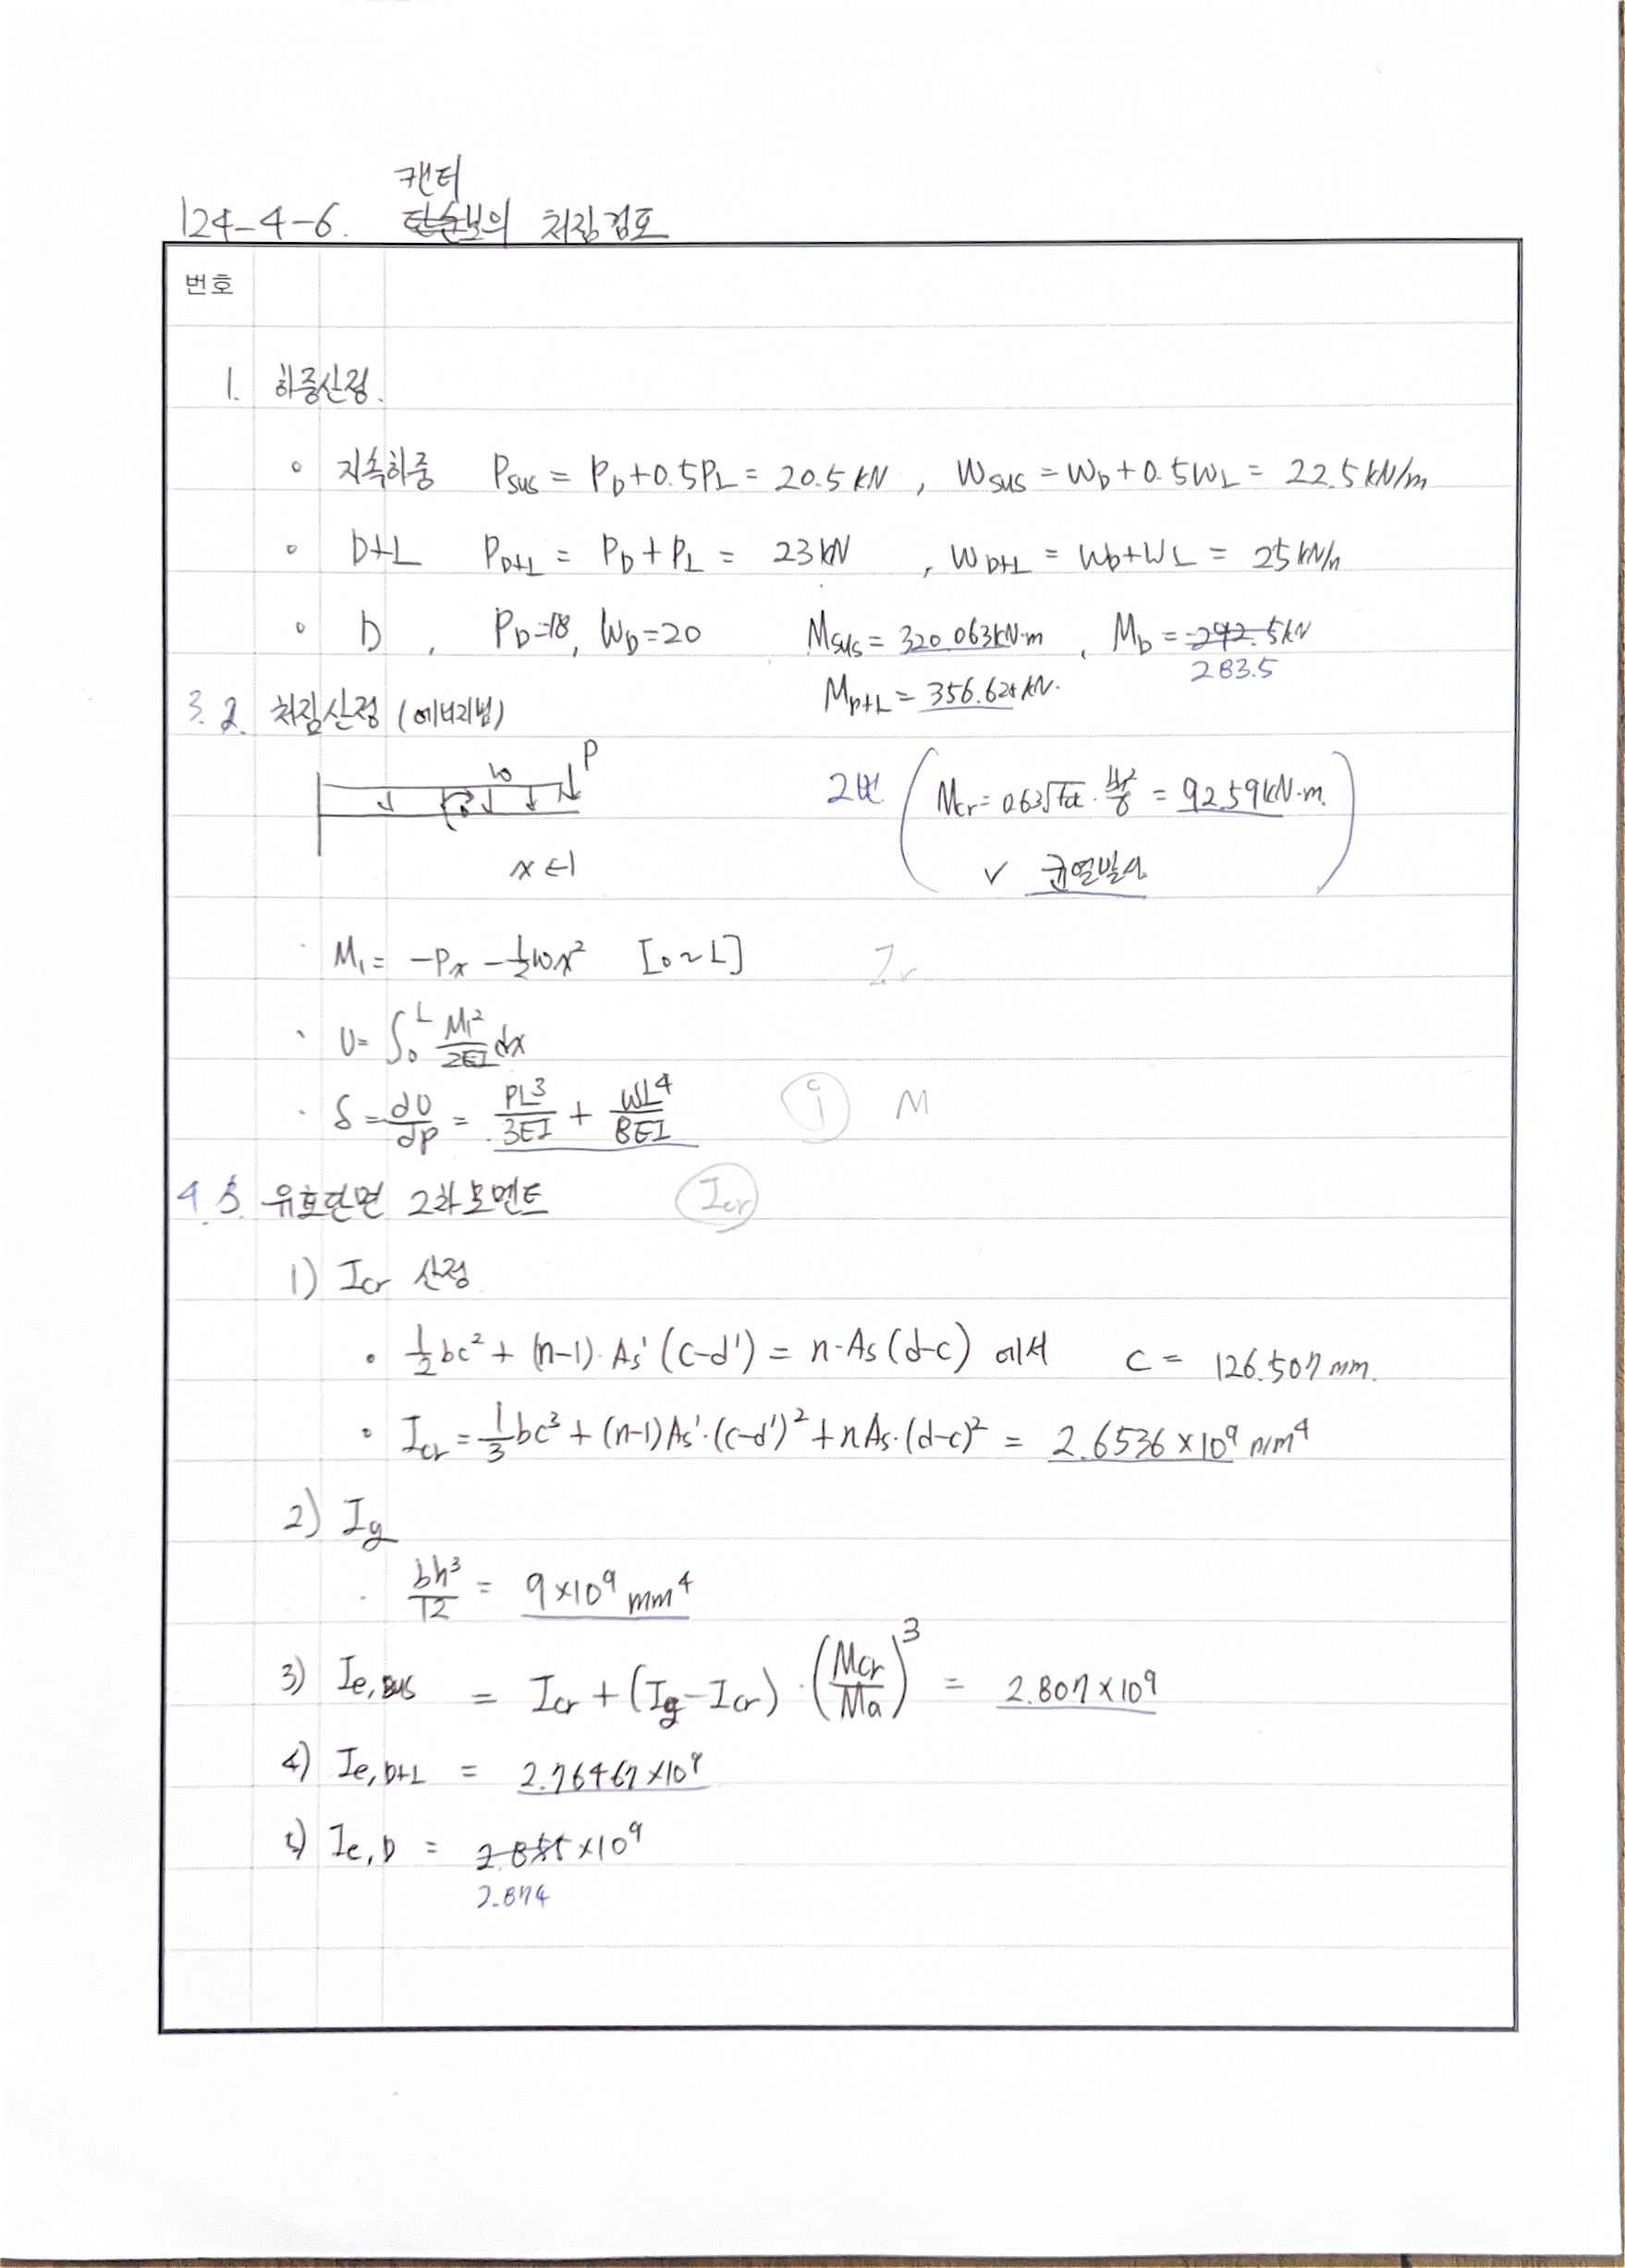 캔터
124-4-6. 단순보의 처짐검토
번호
1. 하중산정.
∘ 지속하중 Psus = PD+0.5PL = 20.5 kN , Wsus = WD+0.5WL = 22.5 kN/m
∘ D+L PD+L = PD+PL = 23 kN , WD+L = WD+WL = 25 kN/m
∘ D , PD=18, WD=20 Msus = 320.063 kN·m , MD = 292.5 kN
283.5
MD+L = 356.625 kN·
3. 2. 처짐산정 (에너지법)
w P
2번 ( Mcr = 0.63√fck · bh²/6 = 92.59 kN·m.
x ← ✓ 균열발생 )
· M1 = -Px - ½wx² [0~L] Ir
· U = ∫₀ᴸ M1²/2EI dx
· δ = dU/dP = PL³/3EI + WL⁴/8EI c i M
4. 3. 유효단면 2차모멘트 Icr
1) Icr 산정
• ½bc² + (n-1)·As'(c-d') = n·As(d-c) 에서 c = 126.507 mm.
• Icr = ⅓bc³ + (n-1)As'·(c-d')² + nAs·(d-c)² = 2.6536×10⁹ mm⁴
2) Ig
· bh³/12 = 9×10⁹ mm⁴
3) Ie,sus = Icr + (Ig-Icr)·(Mcr/Ma)³ = 2.807×10⁹
4) Ie,D+L = 2.76467×10⁹
5) Ie,D = 2.855×10⁹
2.874